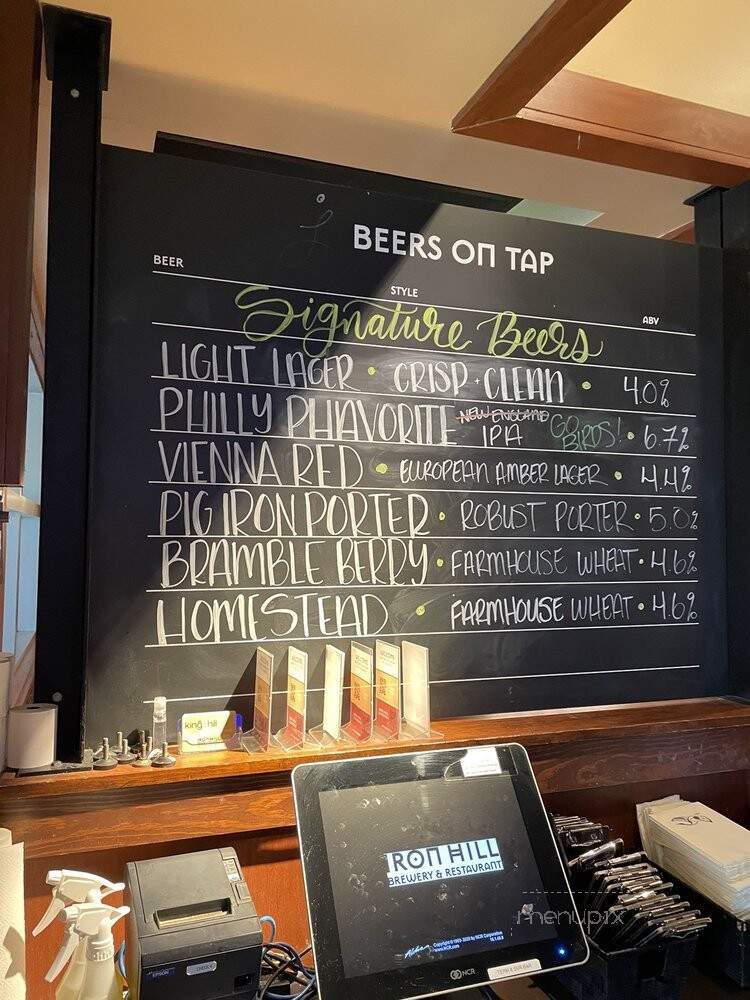 BEERS ON TAP
BEER STYLE ABV
Signature Beers
LIGHT LAGER • CRISP + CLEAN • 4.0%
PHILLY PHAVORITE NEW ENGLAND IPA GO BIRDS! • 6.7%
VIENNA RED • EUROPEAN AMBER LAGER • 4.4%
PIG IRON PORTER • ROBUST PORTER • 5.0%
BRAMBLE BERRY • FARMHOUSE WHEAT • 4.6%
HOMESTEAD • FARMHOUSE WHEAT • 4.6%
IRON HILL
BREWERY & RESTAURANT
menupix
www.NCR.com
NCR
EPSON